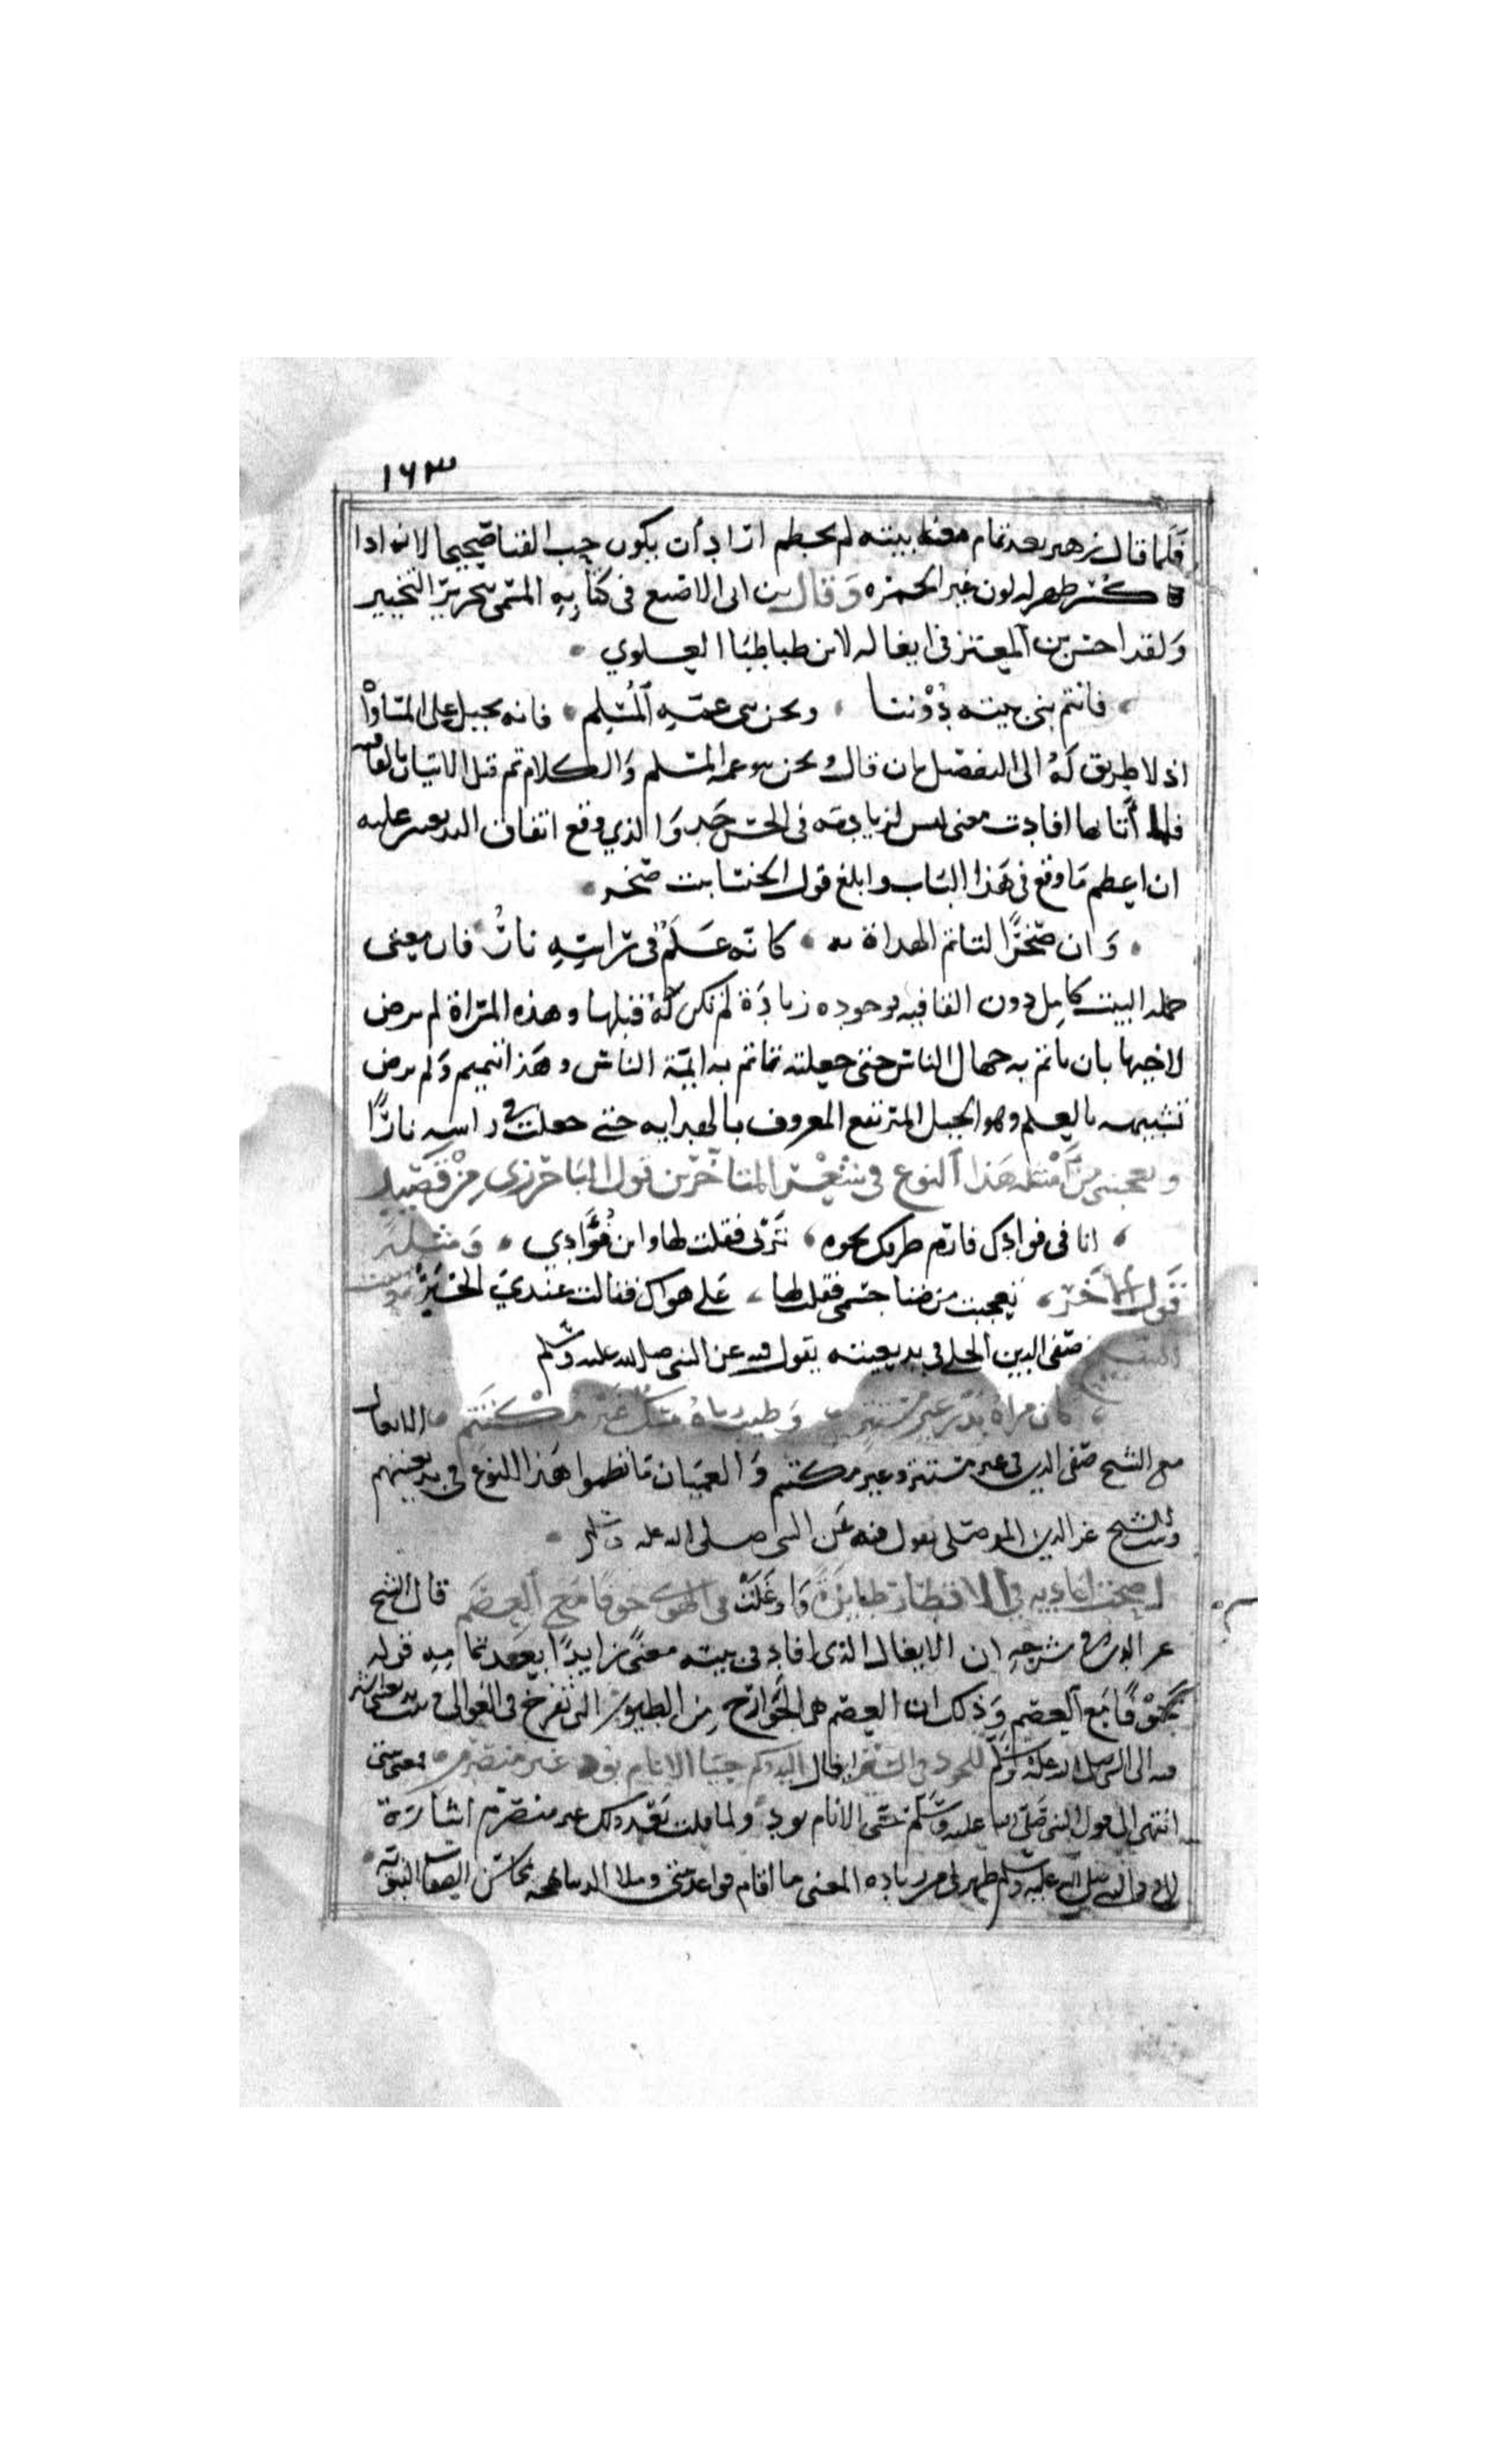 ١٦٣
فلما قال زهير بعد تمام معنا بيته لم يحطم اراد أن يكون حب الفنا صحيحا لانه اذا
كسر ظهر له لون غير الحمره وقال بن ابى الاصبع فى كتابه المسمى بتحرير التحبير
ولقد احسن بن المعتز فى ايغاله لابن طباطبا العلوي
فانتم بنى بيته دوننا ونحن بنى عمه المسلم فانه يحيل على المساواة
اذ لا طريق له الى التفضيل بان قال ونحن بنو عمه المسلم والكلام تم قبل الاتيان بالقافيه
فلما أتا بها افادت معنى ليس لزيادته فى الحسن حد والذي وقع اتفاق البديعيين عليه
ان اعظم ما وقع فى هذا الباب وابلغ قول الخنسا بنت صخر
وان صخرًا لتاتم الهداة به كانه علم فى راسه نار فان معنى
جملة البيت كامل دون القافيه فوجوده زيادة لم تكن له قبلها وهذه المراة لم ترض
لاخيها بان ياتم به جهال الناس حتى جعلته تاتم به ايمة الناس وهذا تتميم ولم ترض
تشبيهه بالعلم وهو الجبل المرتفع المعروف بالهدايه حتى جعلت فى راسه نارًا
ويعجبنى من أمثلة هذا النوع فى شعر المتأخرين قول الباخرزى من قصيد
انا فى فوادك فارم طرفك نحوه ترنى فقلت لها واين فؤادي ومثله
قول الاخر تعجبت من ضنا جسمى فقلت لها على هواك فقالت عندي الخبر
صفى الدين الحلى فى بديعيته يقول فيه عن النبى صلى الله عليه وسلم
كان مرآه بدر غير مستتر وطيب رياه مسك غير مكتتم الايغال
مع الشيخ صفى الدين فى غير مستتر وغير مكتتم والعميان ما نظموا هذا النوع فى بديعيتهم
وبيت الشيخ عز الدين الموصلى يقول فيه عن النبى صلى الله عليه وسلم
اعاديه فى الاقطار طايرة واوغلت فى الهوى خوفا مع العصم قال الشيخ
عز الدين فى شرحه ان الايغال الذى افاد فى بيته معنى زايدًا بعد تمامه قوله
خوفًا مع العصم وذلك ان العصم هى الجوارح من الطيور التى تفرخ فى العوالى وبيت بديعيتى اشير
فيه الى النبى صلى الله عليه وسلم للجود فى السير ايغال اليه وكم حبا الانام بود غير منصرم معنى بيتى
انتهى الى قول النبى صلى الله عليه وسلم حبى الانام بود ولما قلت بعد ذلك غير منصرم اشارة
صلى الله عليه وسلم ظهر لى من زيادة المعنى ما اقام قواعد بيتى وملا الدنيا محاسن الصفات النبويه